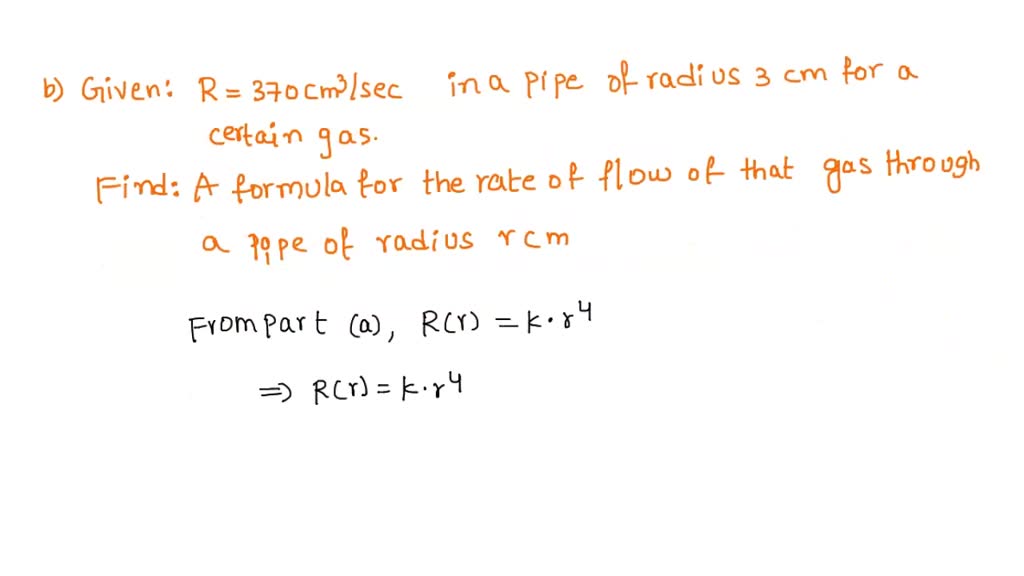 b) Given: R = 370 cm³/sec in a pipe of radius 3 cm for a
certain gas.
Find: A formula for the rate of flow of that gas through
a pipe of radius r cm
From part (a), R(r) = k·r⁴
⇒ R(r) = k·r⁴